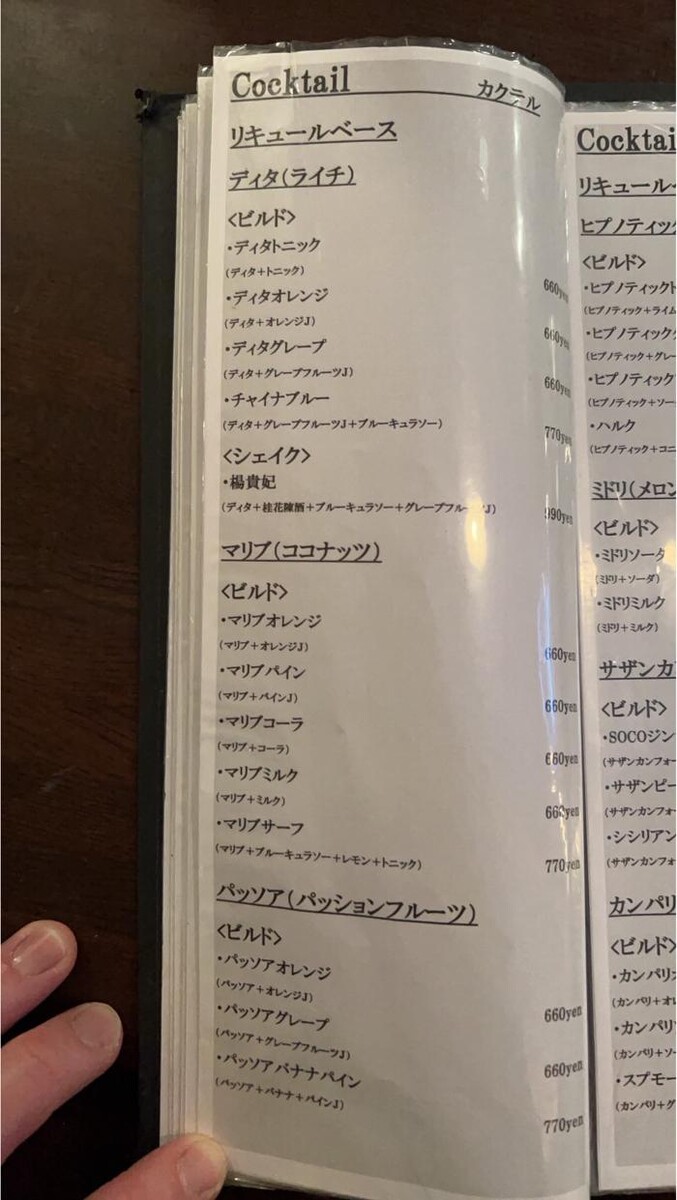 Cocktail カクテル
リキュールベース
ディタ(ライチ)
<ビルド>
・ディタトニック
(ディタ+トニック) 660yen
・ディタオレンジ
(ディタ+オレンジJ) 660yen
・ディタグレープ
(ディタ+グレープフルーツJ) 660yen
・チャイナブルー
(ディタ+グレープフルーツJ+ブルーキュラソー) 770yen
<シェイク>
・楊貴妃
(ディタ+桂花陳酒+ブルーキュラソー+グレープフルーツJ) 990yen
マリブ(ココナッツ)
<ビルド>
・マリブオレンジ
(マリブ+オレンジJ) 660yen
・マリブパイン
(マリブ+パインJ) 660yen
・マリブコーラ
(マリブ+コーラ) 660yen
・マリブミルク
(マリブ+ミルク) 660yen
・マリブサーフ
(マリブ+ブルーキュラソー+レモン+トニック) 770yen
パッソア(パッションフルーツ)
<ビルド>
・パッソアオレンジ
(パッソア+オレンジJ) 660yen
・パッソアグレープ
(パッソア+グレープフルーツJ) 660yen
・パッソアバナナパイン
(パッソア+バナナ+パインJ) 770yen
Cocktai
リキュール
ヒプノティック
<ビルド>
・ヒプノティック
(ヒプノティック+ライム
・ヒプノティック
(ヒプノティック+グレー
・ヒプノティック
(ヒプノティック+ソー
・ハルク
(ヒプノティック+コニ
ミドリ(メロン
<ビルド>
・ミドリソーダ
(ミドリ+ソーダ)
・ミドリミルク
(ミドリ+ミルク)
サザンカ
<ビルド>
・SOCOジン
(サザンカンフォー
・サザンピー
(サザンカンフォー
・シシリアン
(サザンカンフォ
カンパリ
<ビルド>
・カンパリオ
(カンパリ+オレ
・カンパリ
(カンパリ+ソー
・スプモー
(カンパリ+グ